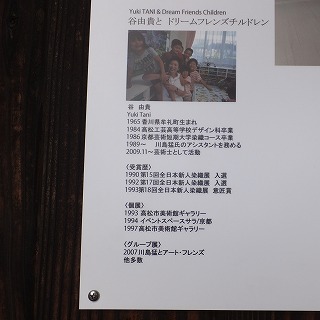 Yuki TANI & Dream Friends Children
谷由貴と ドリームフレンズチルドレン
谷　由貴
Yuki Tani
1965 香川県牟礼町生まれ
1984 高松工芸高等学校デザイン科卒業
1986 京都芸術短期大学染織コース卒業
1989～　川島猛氏のアシスタントを務める
2009.11～芸術士として活動
〈受賞歴〉
1990 第15回全日本新人染織展　入選
1992 第17回全日本新人染織展　入選
1993第18回全日本新人染織展　意匠賞
〈個展〉
1993 高松市美術館ギャラリー
1994 イベントスペースサラ/京都
1997 高松市美術館ギャラリー
〈グループ展〉
2007川島猛とアート・フレンズ
他多数